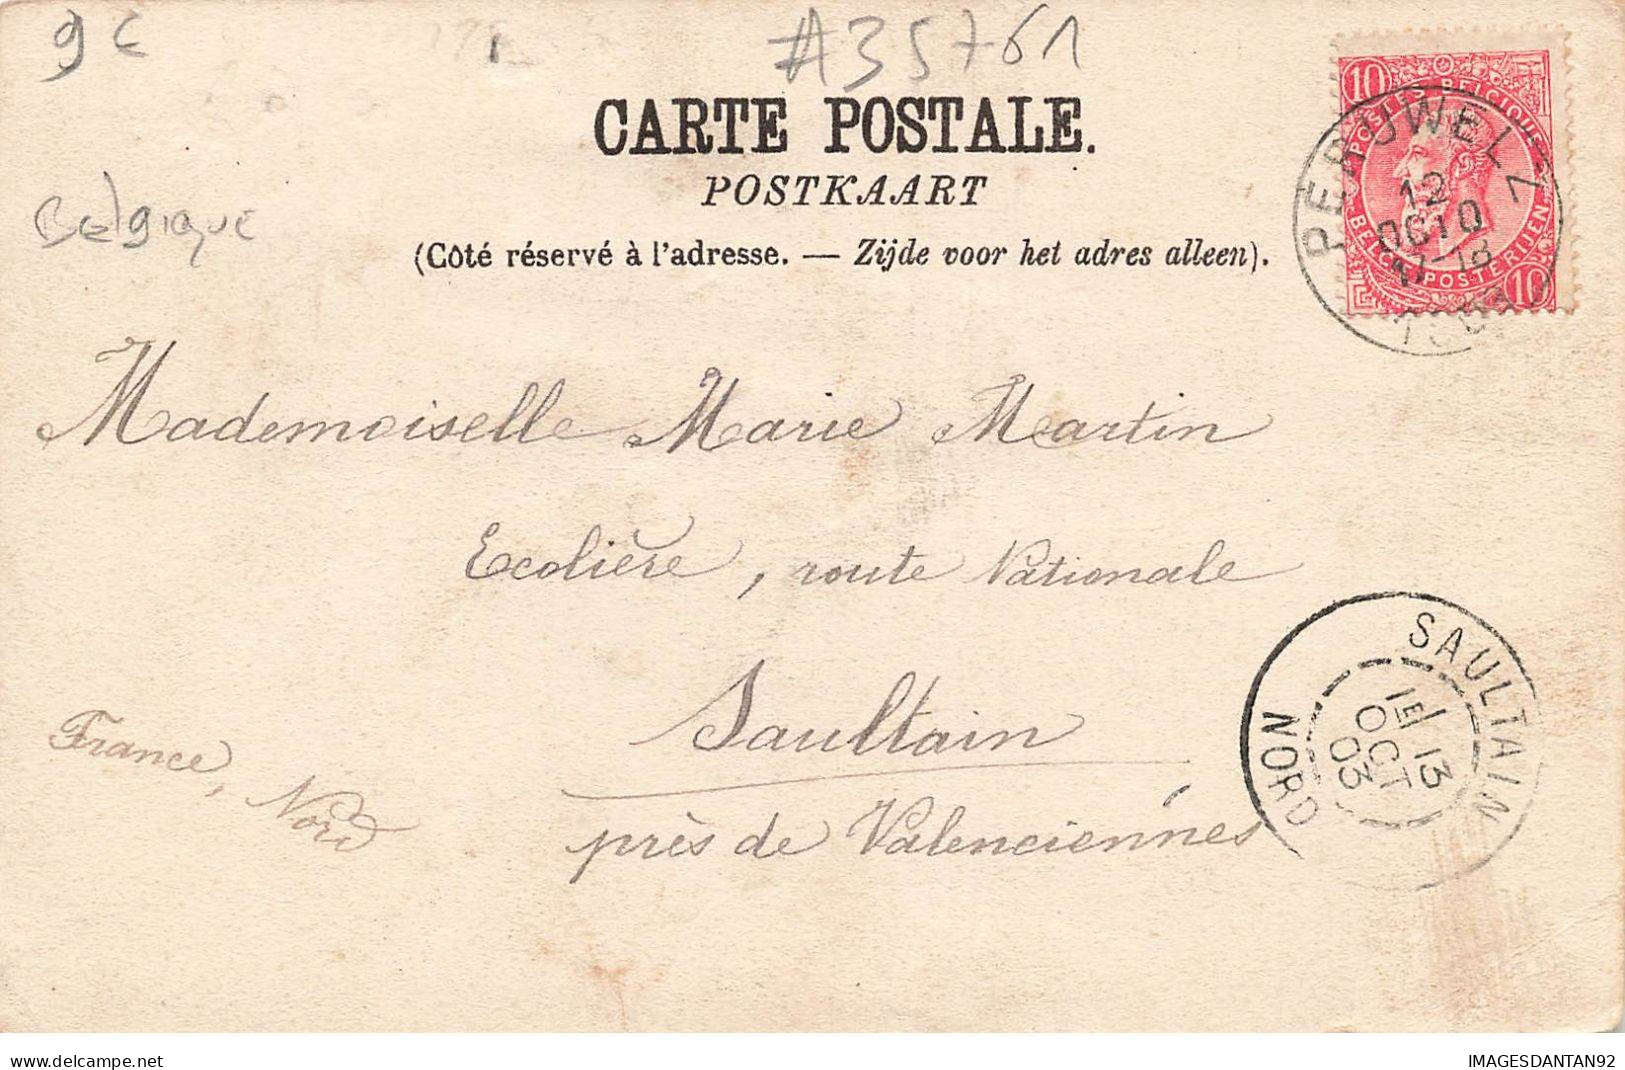 9 €
#35761
CARTE POSTALE.
POSTKAART
Belgique
(Côté réservé à l'adresse. — Zijde voor het adres alleen).
10
POSTES BELGIQUE
BELGIË POSTERIJEN
10
PERUWELZ
12
OCTO
17-18
1903
Mademoiselle Marie Martin
Ecolière, route Nationale
Saultain
près de Valenciennes
France, Nord
SAULTAIN
1E 13
OCT
03
NORD
www.delcampe.net
IMAGESDANTAN92